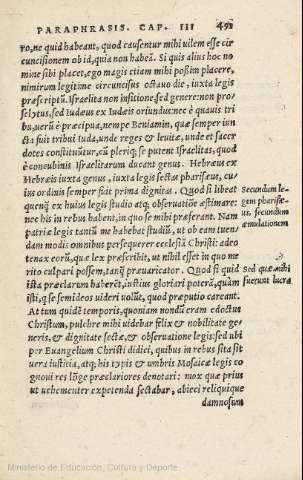 PARAPHRASIS. CAP. III 491
ro, ne quid habeant, quod causentur mihi uilem esse cir
cuncisionem ob id, quia non habeā. Si quis alius hoc no
mine sibi placet, ego magis etiam mihi possim placere,
nimirum legitime circuncisus octauo die, iuxta legis
præscriptū. Israelita non insitione, sed genere: non pro-
selytus, sed Iudæus ex Iudæis oriundus: nec è quauis tri
bu, uerū è præcipua, nempe Beniamin, quæ semper iun
cta fuit tribui Iuda, unde reges & leuitæ, unde et sacer
dotes constituūtur, cū pleriq; se putent Israelitas, quod
è concubinis Israelitarum ducant genus. Hebræus ex
Hebræis iuxta genus, iuxta legis sectā pharisæus, cu-
ius ordinis semper fuit prima dignitas. Quod si libeat
quenq̃ ex huius legis studio atq; obseruatiōe æstimare:
nec his in rebus habent, in quo se mihi præferant. Nam
patriæ legis tantū me habebat studiū, ut ob eam tuen-
dam modis omnibus persequerer ecclesiā Christi: adeo
tenax eorū, quæ lex præscribit, ut nihil esset in quo me
rito culpari possem, tanq̃ præuaricator. Quod si quid
ista præclarum haberēt, iustius gloriari poterā, quàm
isti, q̃ se semideos uideri uolūt, quod præputio careant.
At tum quidē temporis, quoniam nondū eram edoctus
Christum, pulchre mihi uidebar felix & nobilitate ge-
neris, & dignitate sectæ, & obseruatione legis: sed ubi
per Euangelium Christi didici, quibus in rebus sita sit
uera iustitia, atq; his typis & umbris Mosaicæ legis co
gnoui res lōge præclariores denotari: mox quæ prius
ut uehementer expetenda sectabar, abieci reliquique
damnosum
Secundum le-
gem pharisæ-
us, secundum
æmulationem
Sed quæ mihi
fuerunt lucra
Ministerio de Educación, Cultura y Deporte